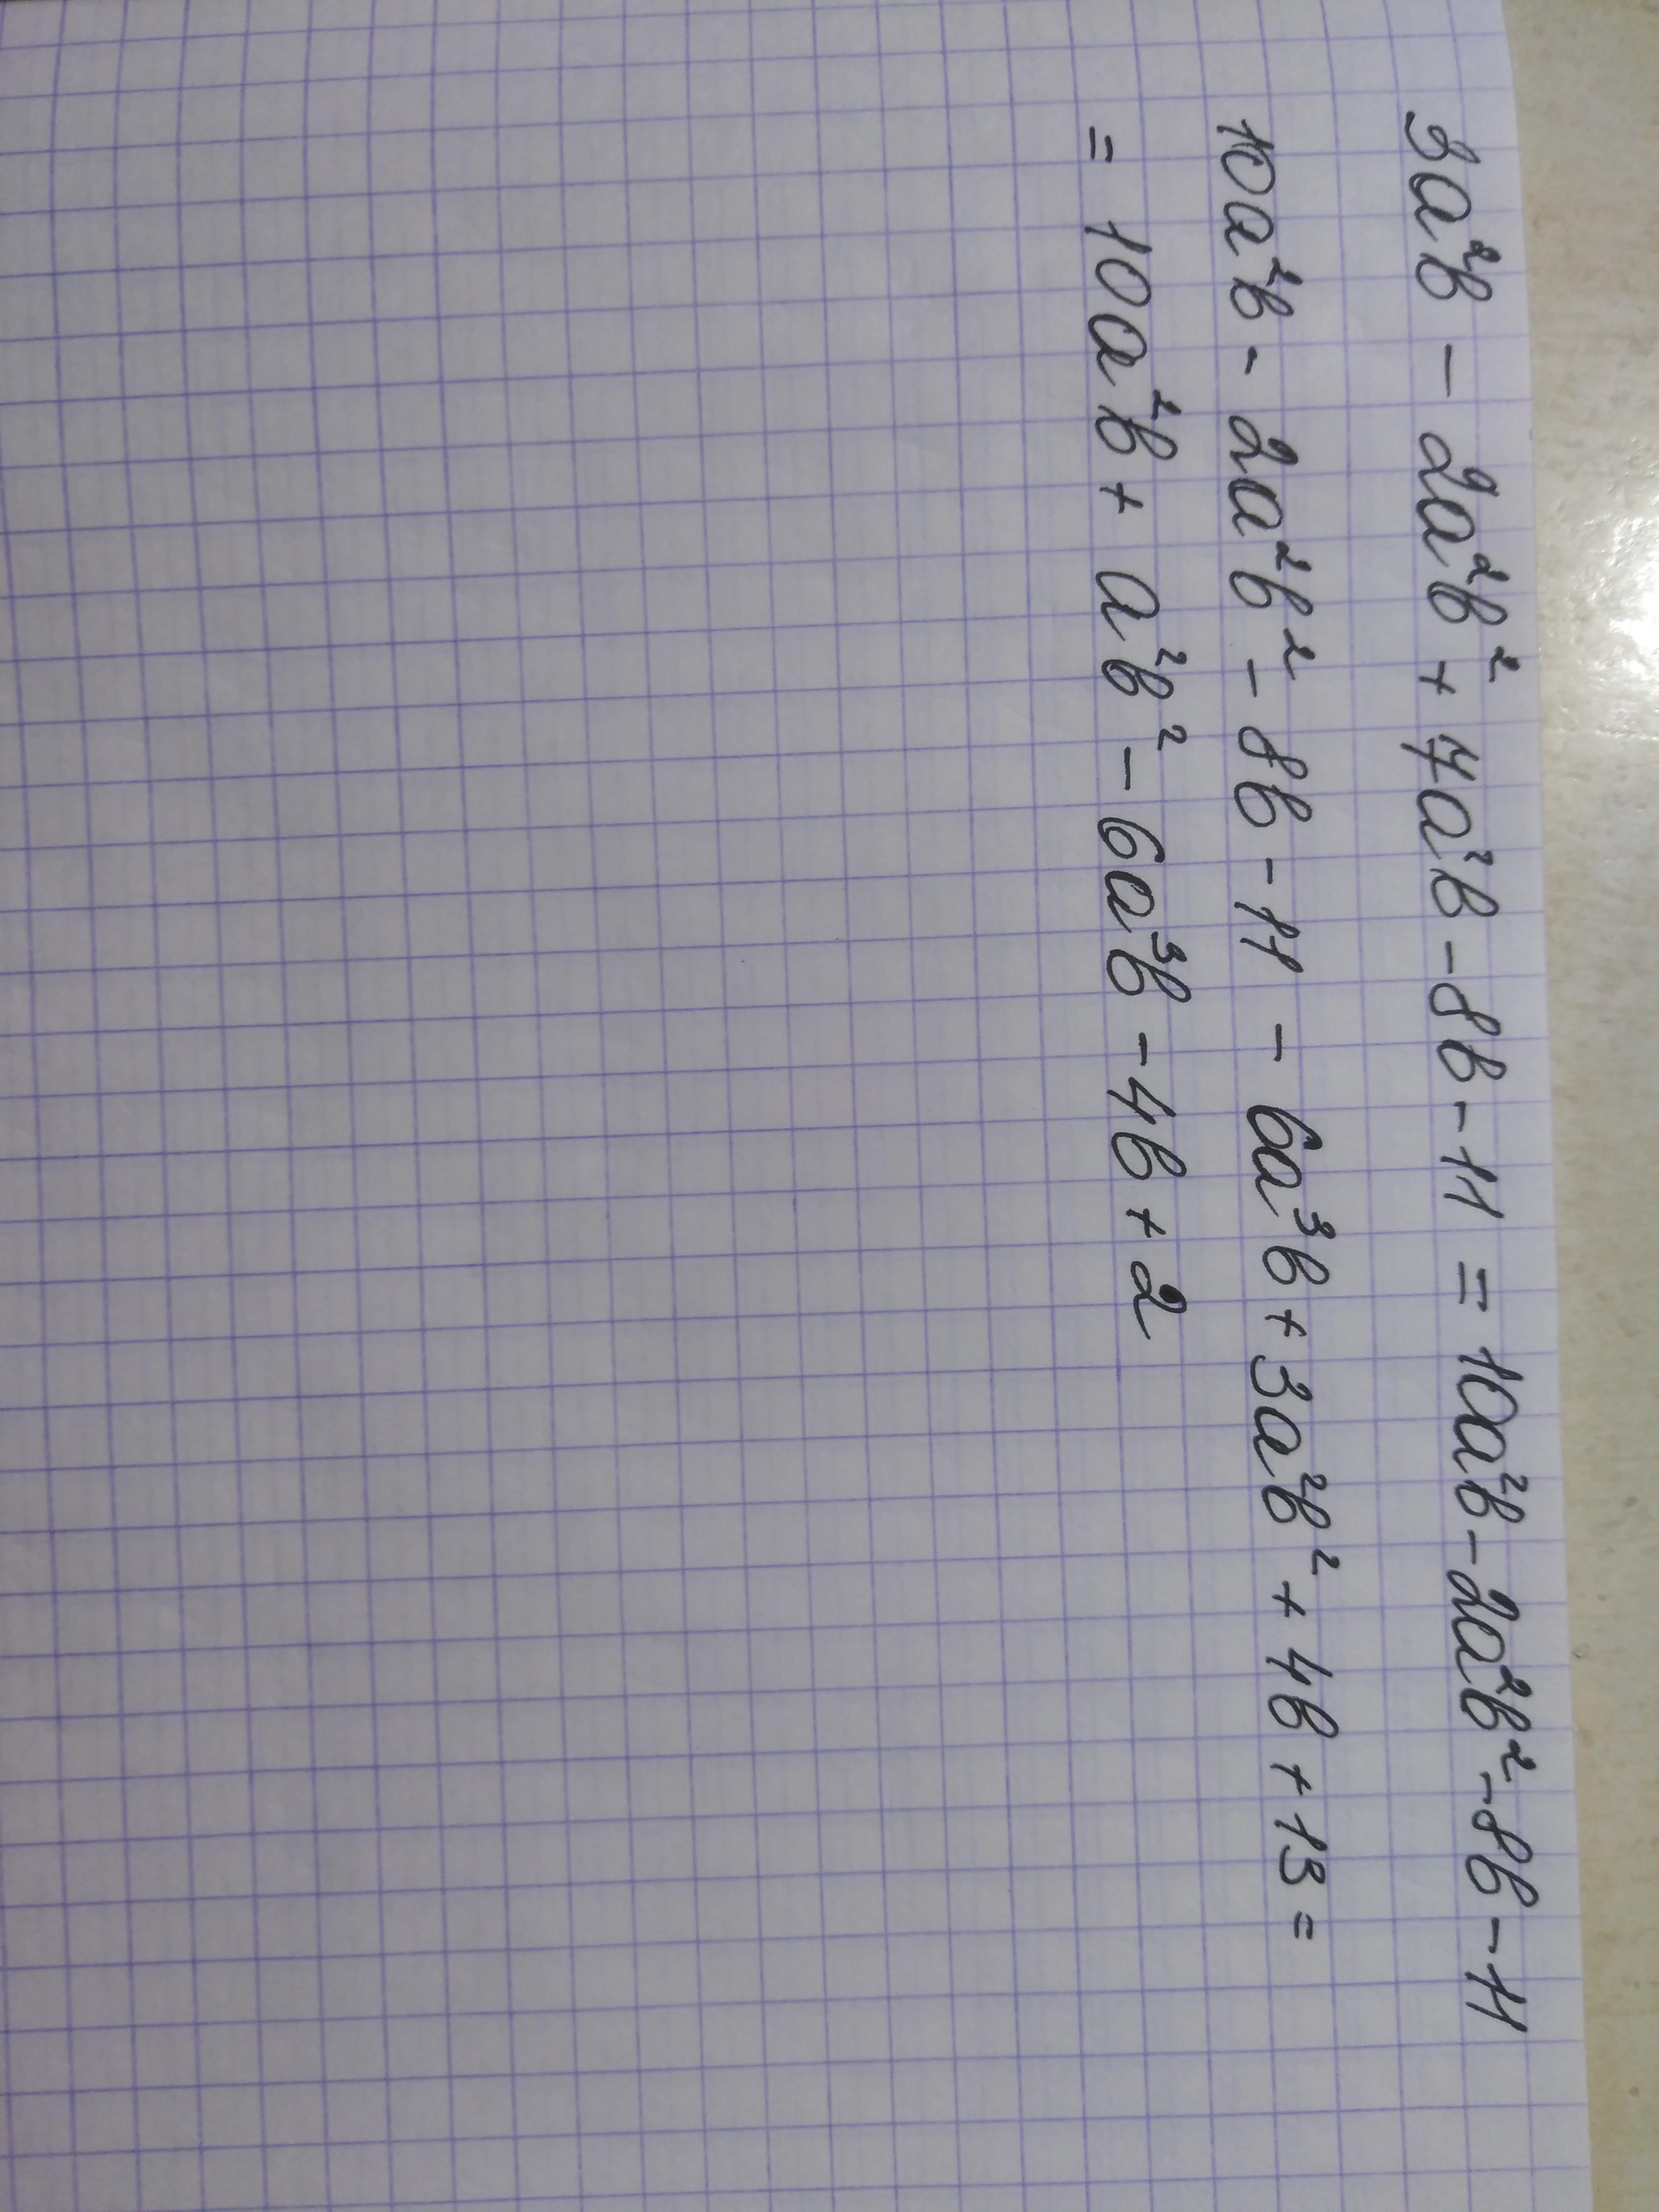 3a²b - 2a²b² + 7a²b - 8b - 11 = 10a²b - 2a²b² - 8b - 11
10a²b - 2a²b² - 8b - 11 - 6a³b + 3a²b² + 4b + 13 =
= 10a²b + a²b² - 6a³b - 4b + 2